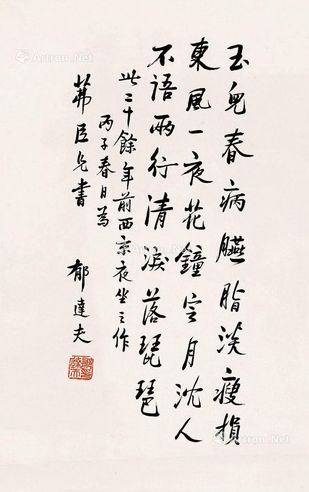 玉儿春病臙脂淡瘦損
東風一夜花鐘定月沈人
不語兩行清淚落琵琶
此二十餘年前西京夜坐之作
丙子春日為
茀臣兄書
郁達夫
Artron.Net